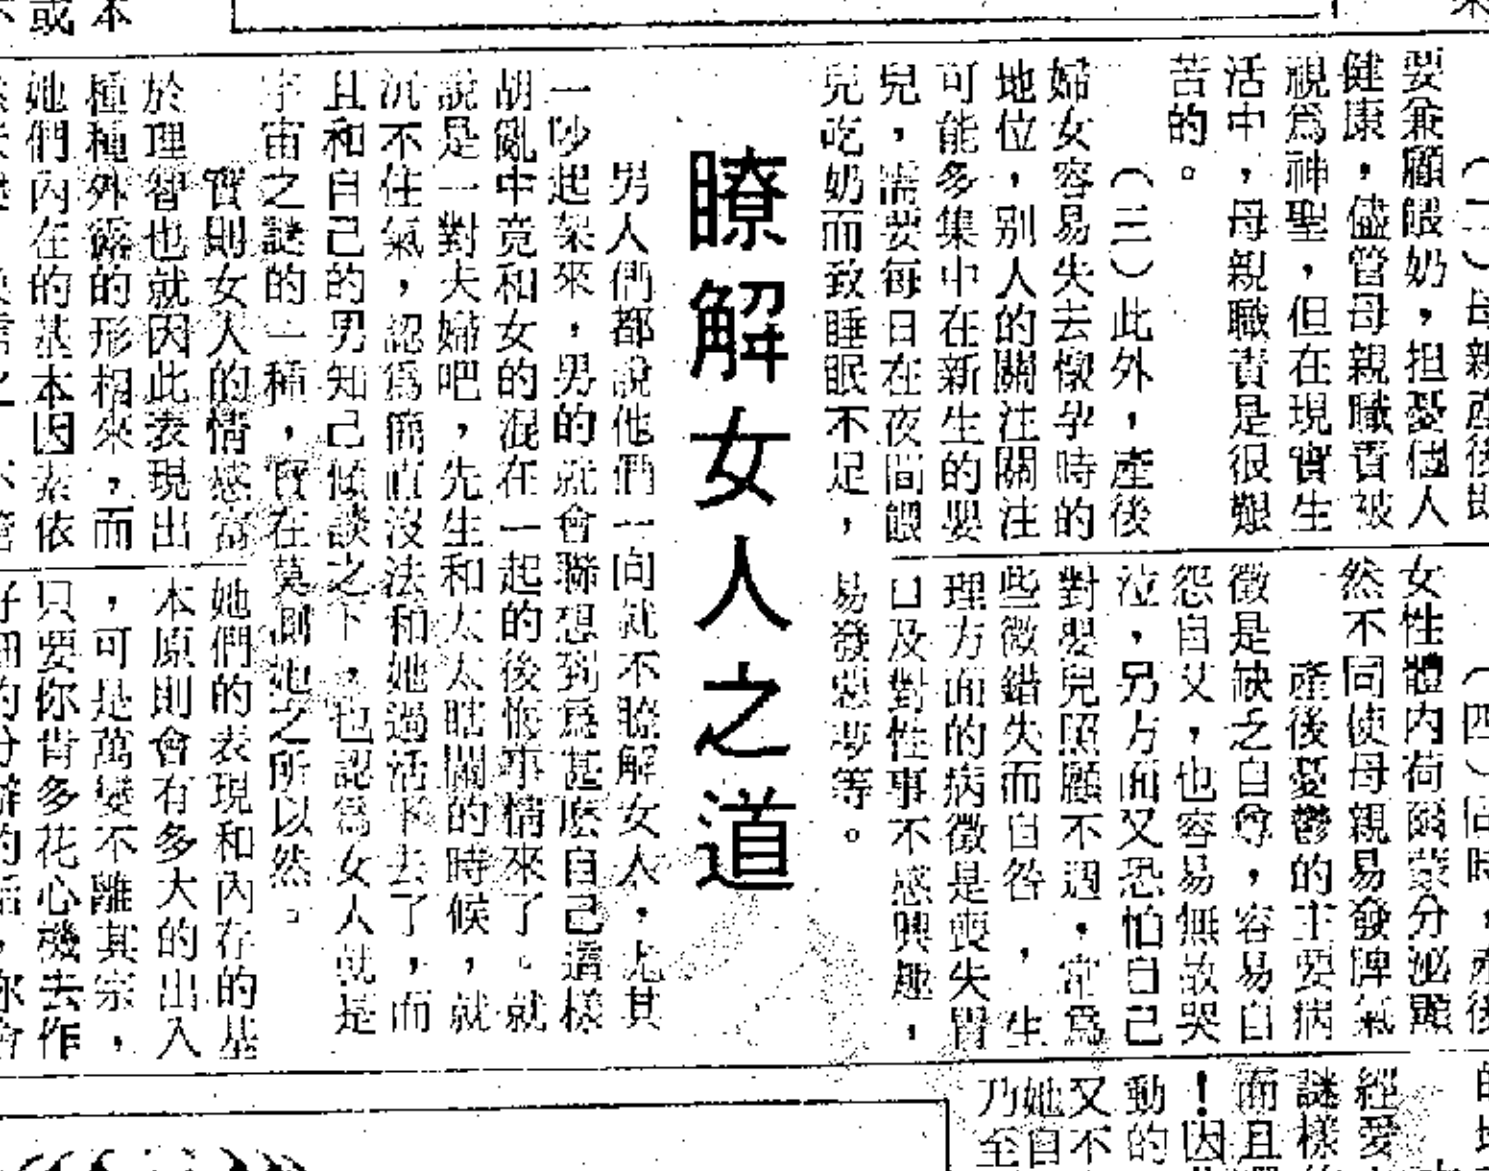 本
或
（二）母親產後即
要兼顧餵奶，担憂個人
健康，儘管母親職責被
視爲神聖，但在現實生
活中，母親職責是很艱
苦的。
（三）此外，產後
婦女容易失去懷孕時的
地位，別人的關注關注
可能多集中在新生的嬰
兒，需要每日在夜間餵
兒吃奶而致睡眠不足，
（四）同時，產後
女性體內荷爾蒙分泌顯
然不同使母親易發脾氣
產後憂鬱的主要病
徵是缺乏自尊，容易自
怨自艾，也容易無故哭
泣，另方面又恐怕自己
對嬰兒照顧不週，常爲
些微錯失而自咎，生
理方面的病徵是喪失胃
口及對性事不感興趣，
易發惡夢等。
瞭解女人之道
男人們都說他們一向就不瞭解女人，尤其
一吵起架來，男的就會聯想到爲甚麽自己這樣
胡亂中竟和女的混在一起的後悔事情來了。就
說是一對夫婦吧，先生和太太瞎鬧的時候，就
沉不住氣，認爲簡直沒法和她過活下去了，而
且和自己的男知己傾談之下，也認爲女人就是
宇宙之謎的一種，實在莫測她之所以然。
實則女人的情感富
於理智也就因此表現出
種種外露的形相來，而
她們內在的基本因素依
她們的表現和內存的基
本原則會有多大的出入
，可是萬變不離其宗，
只要你肯多花心機去作
好細的分辦的話，你會
經愛
謎樣
而且
！因
動的
又不
她自
乃至